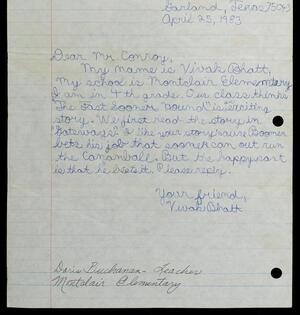 Garland, Texas 75043
April 25, 1983
Dear Mr Conroy,
My name is Vivak Bhatt,
My school is Montclair Elementary
I am in 4th grade. Our class thinks
"The Fast Sooner Hound" is exciting
story. We first read the story in
"Gateways". I like your story cause Boomer
bets his job that sooner can out run
the Cannonball. But the happy part
is that he beats it. Please reply.
Your friend,
Vivak Bhatt
Doris Buchanan - Teacher
Montclair Elementary